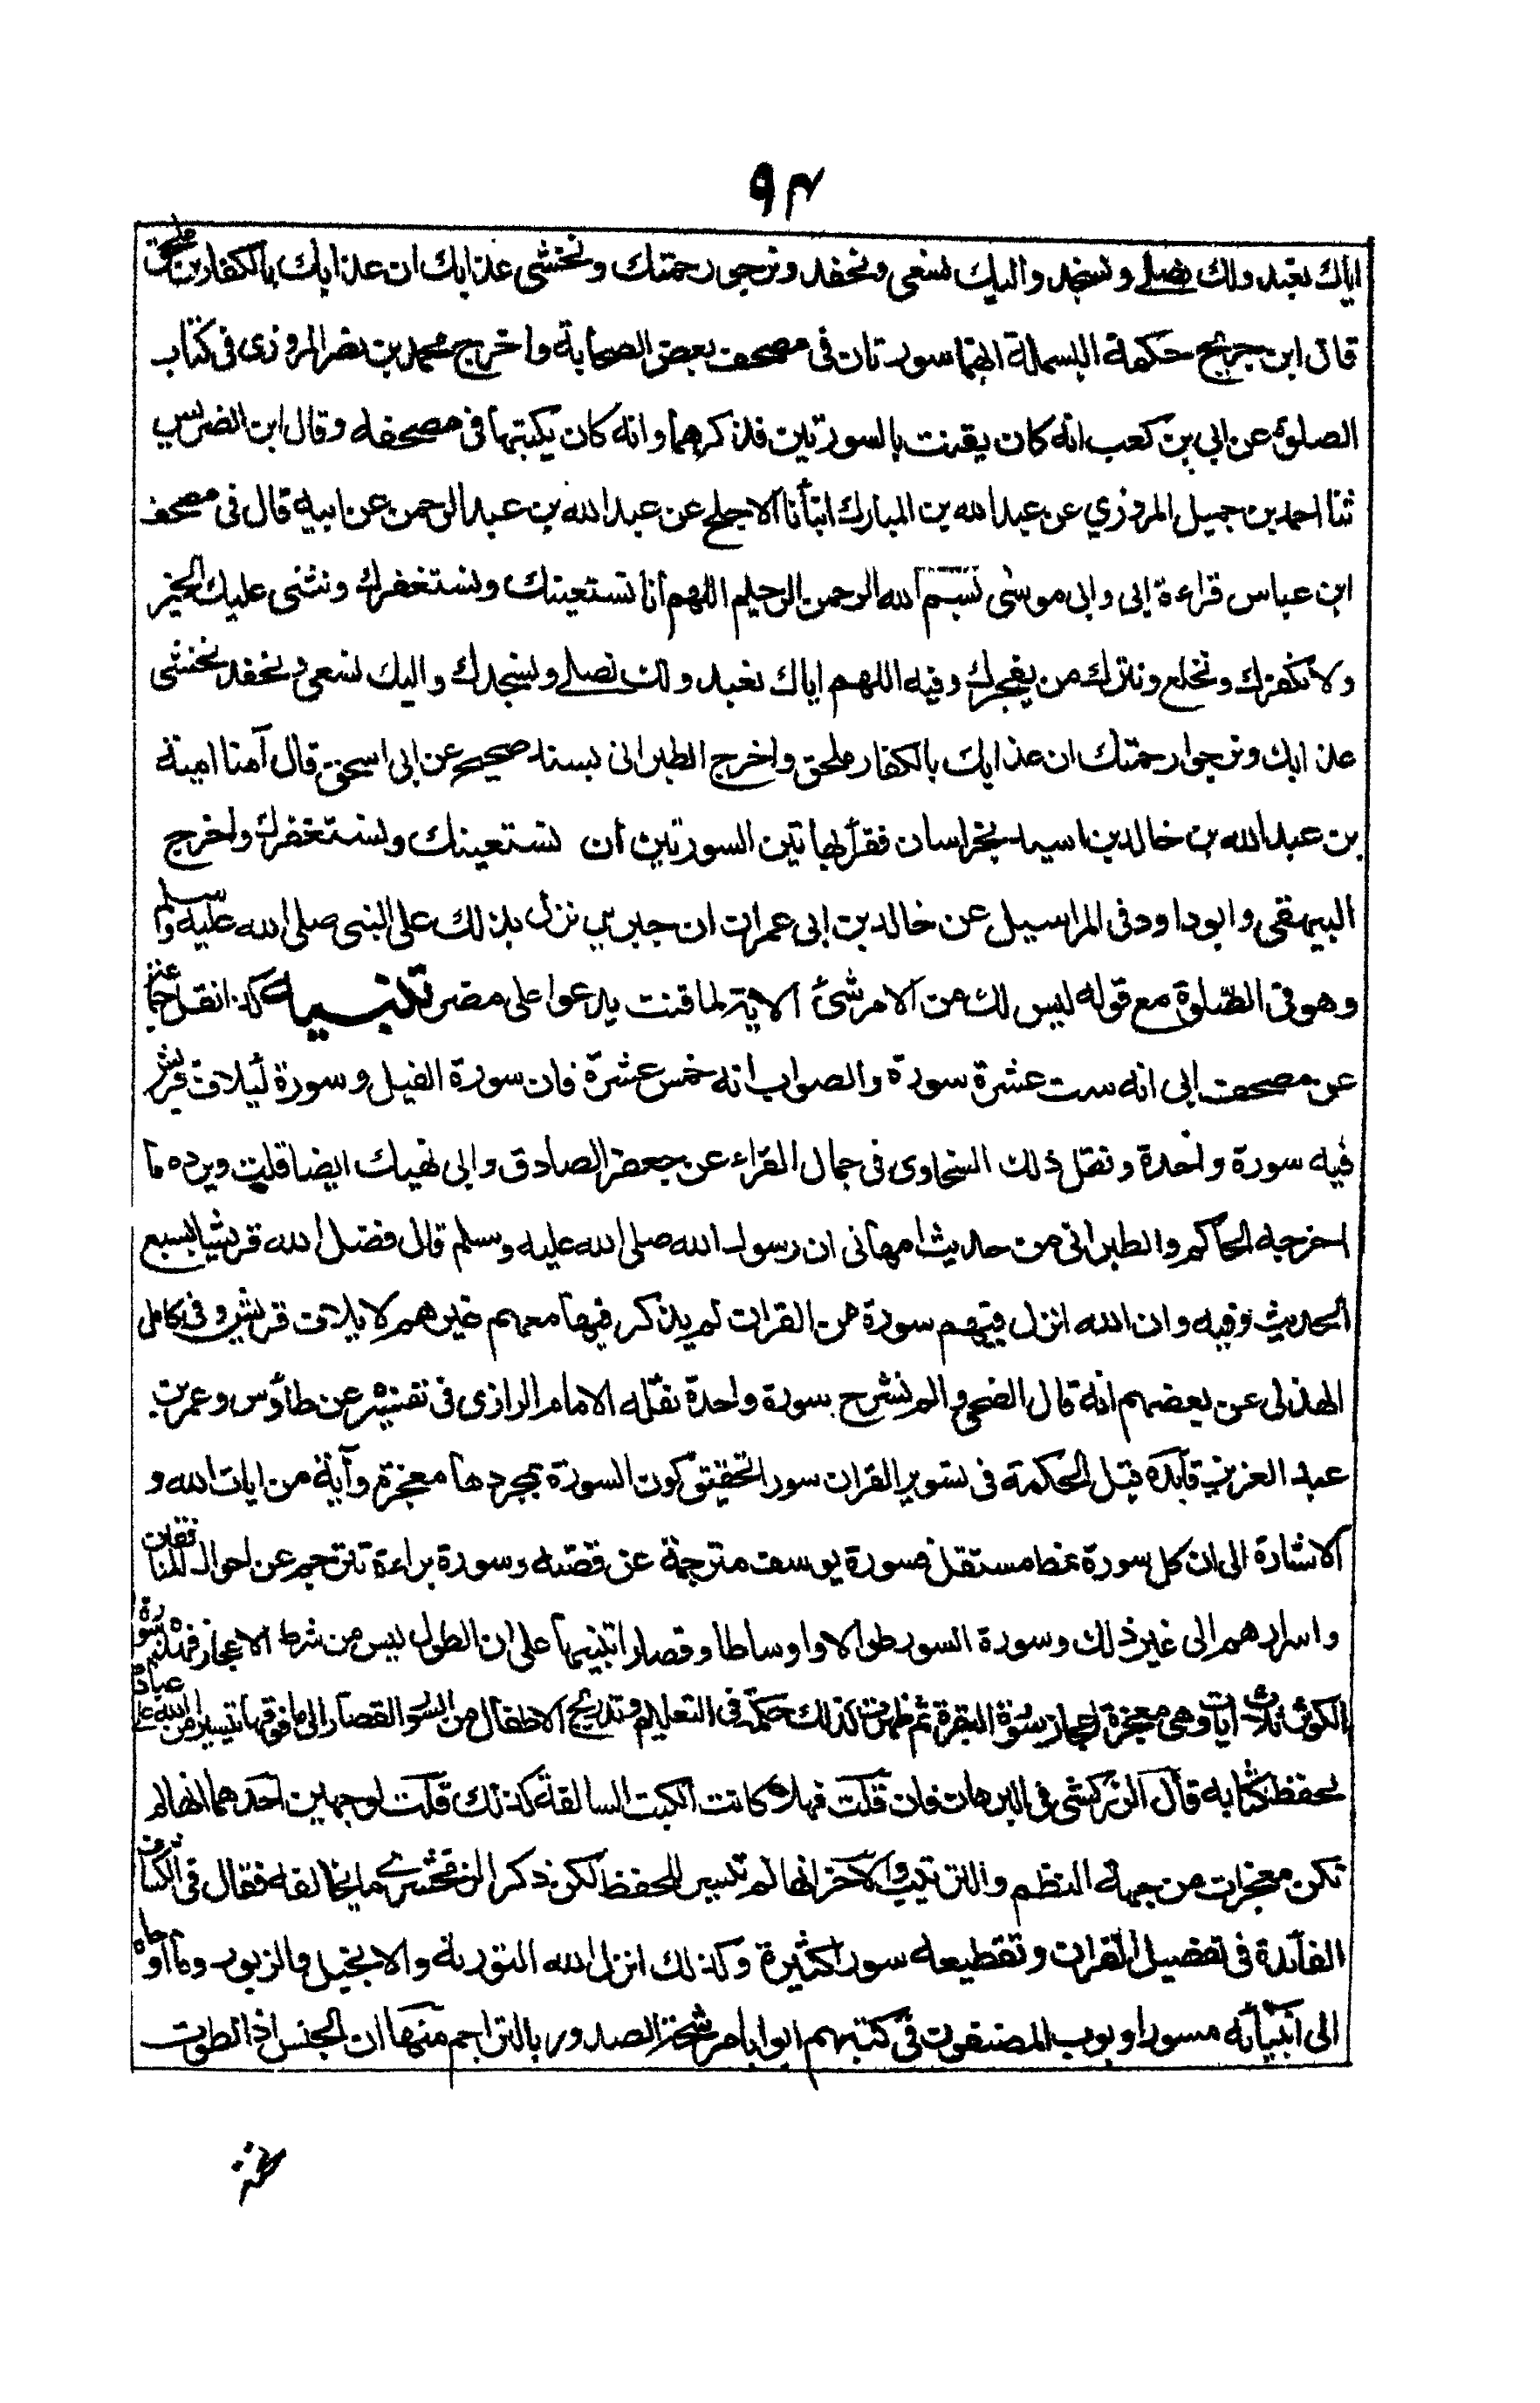 ٩٤
اياك نعبد ولك نصلي ونسجد واليك نسعى ونحفد ونرجو رحمتك ونخشى عذابك ان عذابك بالكفارين ملحق
قال ابن جريج حكمة البسملة انهما سورتان فى مصحف بعض الصحابة واخرج محمد بن نصر المروزى فى كتاب
الصلوة عن ابي بن كعب انه كان يقنت بالسورتين فذكرهما وانه كان يكتبها فى مصحفه وقال ابن الضريس
ثنا احمد بن جميل المروزي عن عبد الله بن المبارك انبأنا الاجلح عن عبد الله بن عبد الرحمن عن ابيه قال فى مصحف
ابن عباس قراءة ابى وابى موسى بسم الله الرحمن الرحيم اللهم انا نستعينك ونستغفرك ونثنى عليك الخير
ولا نكفرك ونخلع ونترك من يفجرك وفيه اللهم اياك نعبد ولك نصلي ونسجدك واليك نسعى ونحفد نخشى
عذابك ونرجوا رحمتك ان عذابك بالكفار ملحق واخرج الطبرانى بسند صحيح عن ابى اسحق قال آمنا امية
بن عبد الله بن خالد بن اسيد بخراسان فقرأ بهاتين السورتين ان نستعينك ونستغفرك واخرج
البيهقى وابوداود فى المراسيل عن خالد بن ابى عمران ان جبريل نزل بذلك على النبى صلى الله عليه وسلم
وهو فى الصلوة مع قوله ليس لك من الامر شئ الاية لما قنت يدعوا على مضر تنبيه كذا نقل جماعة
عن مصحف ابى انه ست عشرة سورة والصواب انه خمس عشرة فان سورة الفيل وسورة ليلاف قريش
فيه سورة واحدة ونقل ذلك السخاوى فى جمال القراء عن جعفر الصادق وابى نهيك ايضا قلت ويرده ما
اخرجه الحاكم والطبرانى من حديث امهانى ان رسول الله صلى الله عليه وسلم قال فضل الله قريشا بسبع
الحديث وفيه وان الله انزل فيهم سورة من القران لم يذكر فيها معهم غيرهم لايلاف قريش وفى كامل
الهذلى عن بعضهم انه قال الضحى والم نشرح سورة واحدة نقله الامام الرازى فى تفسيره عن طاؤس وعمر بن
عبد العزيز فائدة قيل الحكمة فى تسوير القران سورا تحقيق كون السورة بمجردها معجزة وآية من ايات الله و
الاشارة الى ان كل سورة نمط مستقل فسورة يوسف مترجمة عن قصته وسورة براءة تترجم عن احوال المنافقين
واسرارهم الى غير ذلك وسورة السور طوالا واوساطا وقصارا تنبيها على ان الطول ليس من شرط الاعجاز فهذه سورة
الكوثر ثلاث ايات وهى معجزة اعجاز سورة البقرة ثم ظهرت لذلك حكمة فى التعليم وتدريج الاطفال من السور القصار الى ما فوقها تيسيرا من الله على عباده
لحفظ كتابه قال الزركشى فى البرهان فان قلت فهلا كانت الكتب السالفة كذلك قلت لوجهين احدهما انها لم
تكن معجزات من جهة النظم والترتيب والآخر انها لم تيسر للحفظ لكن ذكر الزمخشرى ما يخالفه فقال فى الكشاف
الفائدة فى تفصيل القران وتقطيعه سورا كثيرة وكذلك انزل الله التورية والانجيل والزبور وما اوحاه
الى انبيائه مسورا وبوب المصنفون فى كتبهم ابوابا مرشحة الصدور بالتراجم منها ان الجنس اذا انطوت